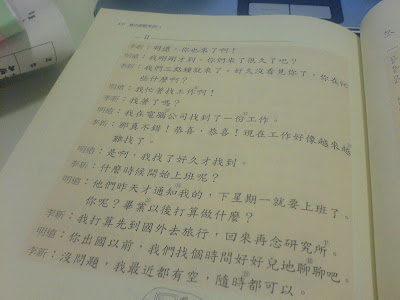 二
李新：明德，你也來了啊！
明德：我剛剛才到，你們來了很久了吧？
李新：我們二點鐘就來了。好久沒看見你了，你在忙
些什麼啊？
明德：我忙著找工作啊！
李新：找著了嗎？
明德：我在電腦公司找到了一份工作。
李新：那真不錯！恭喜，恭喜！現在工作好像越來越
難找了。
明德：是啊，我找了好久才找到。
李新：什麼時候開始上班呢？
明德：他們昨天才通知我的，下星期一就要上班了。
你呢？畢業以後打算做什麼？
李新：我打算先到國外去旅行，回來再念研究所。
明德：你出國以前，我們找個時間好好兒地聊聊吧。
李新：沒問題，我最近都有空，隨時都可以。